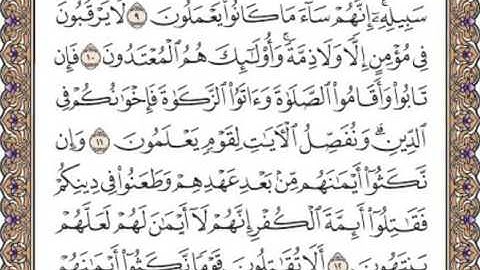 سَبِيلِهِۦٓۚ إِنَّهُمْ سَآءَ مَا كَانُوا۟ يَعْمَلُونَ ۝٩ لَا يَرْقُبُونَ
فِى مُؤْمِنٍ إِلًّا وَلَا ذِمَّةًۚ وَأُو۟لَٰٓئِكَ هُمُ ٱلْمُعْتَدُونَ ۝١٠ فَإِن
تَابُوا۟ وَأَقَامُوا۟ ٱلصَّلَوٰةَ وَءَاتَوُا۟ ٱلزَّكَوٰةَ فَإِخْوَٰنُكُمْ فِى
ٱلدِّينِۗ وَنُفَصِّلُ ٱلْءَايَٰتِ لِقَوْمٍ يَعْلَمُونَ ۝١١ وَإِن
نَّكَثُوٓا۟ أَيْمَٰنَهُم مِّنۢ بَعْدِ عَهْدِهِمْ وَطَعَنُوا۟ فِى دِينِكُمْ
فَقَٰتِلُوٓا۟ أَئِمَّةَ ٱلْكُفْرِۙ إِنَّهُمْ لَآ أَيْمَٰنَ لَهُمْ لَعَلَّهُمْ
يَنتَهُونَ ۝١٢ أَلَا تُقَٰتِلُونَ قَوْمًا نَّكَثُوٓا۟ أَيْمَٰنَهُمْ